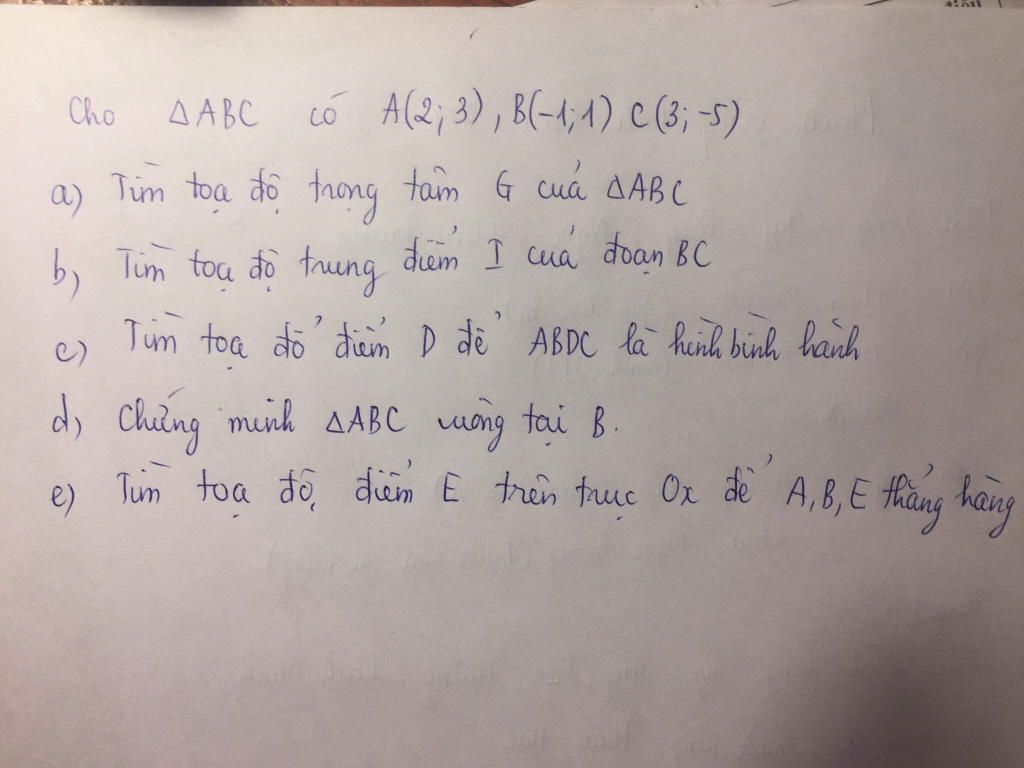 Cho ΔABC có A(2; 3), B(-1; 1) C(3; -5)
a) Tìm toạ độ trọng tâm G của ΔABC
b) Tìm toạ độ trung điểm I của đoạn BC
c) Tìm toạ đổ điểm D để ABDC là hình bình hành
d) Chứng minh ΔABC vuông tại B.
e) Tìm toạ độ điểm E trên trục Ox để A, B, E thẳng hàng